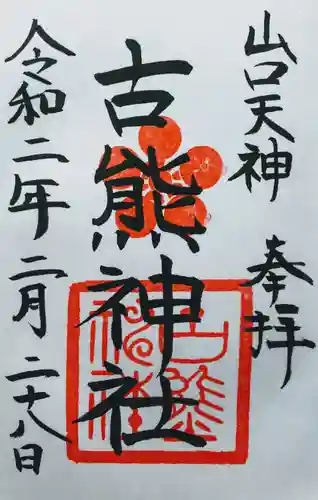 山口天神 奉拝
古熊神社
令和二年二月二十八日